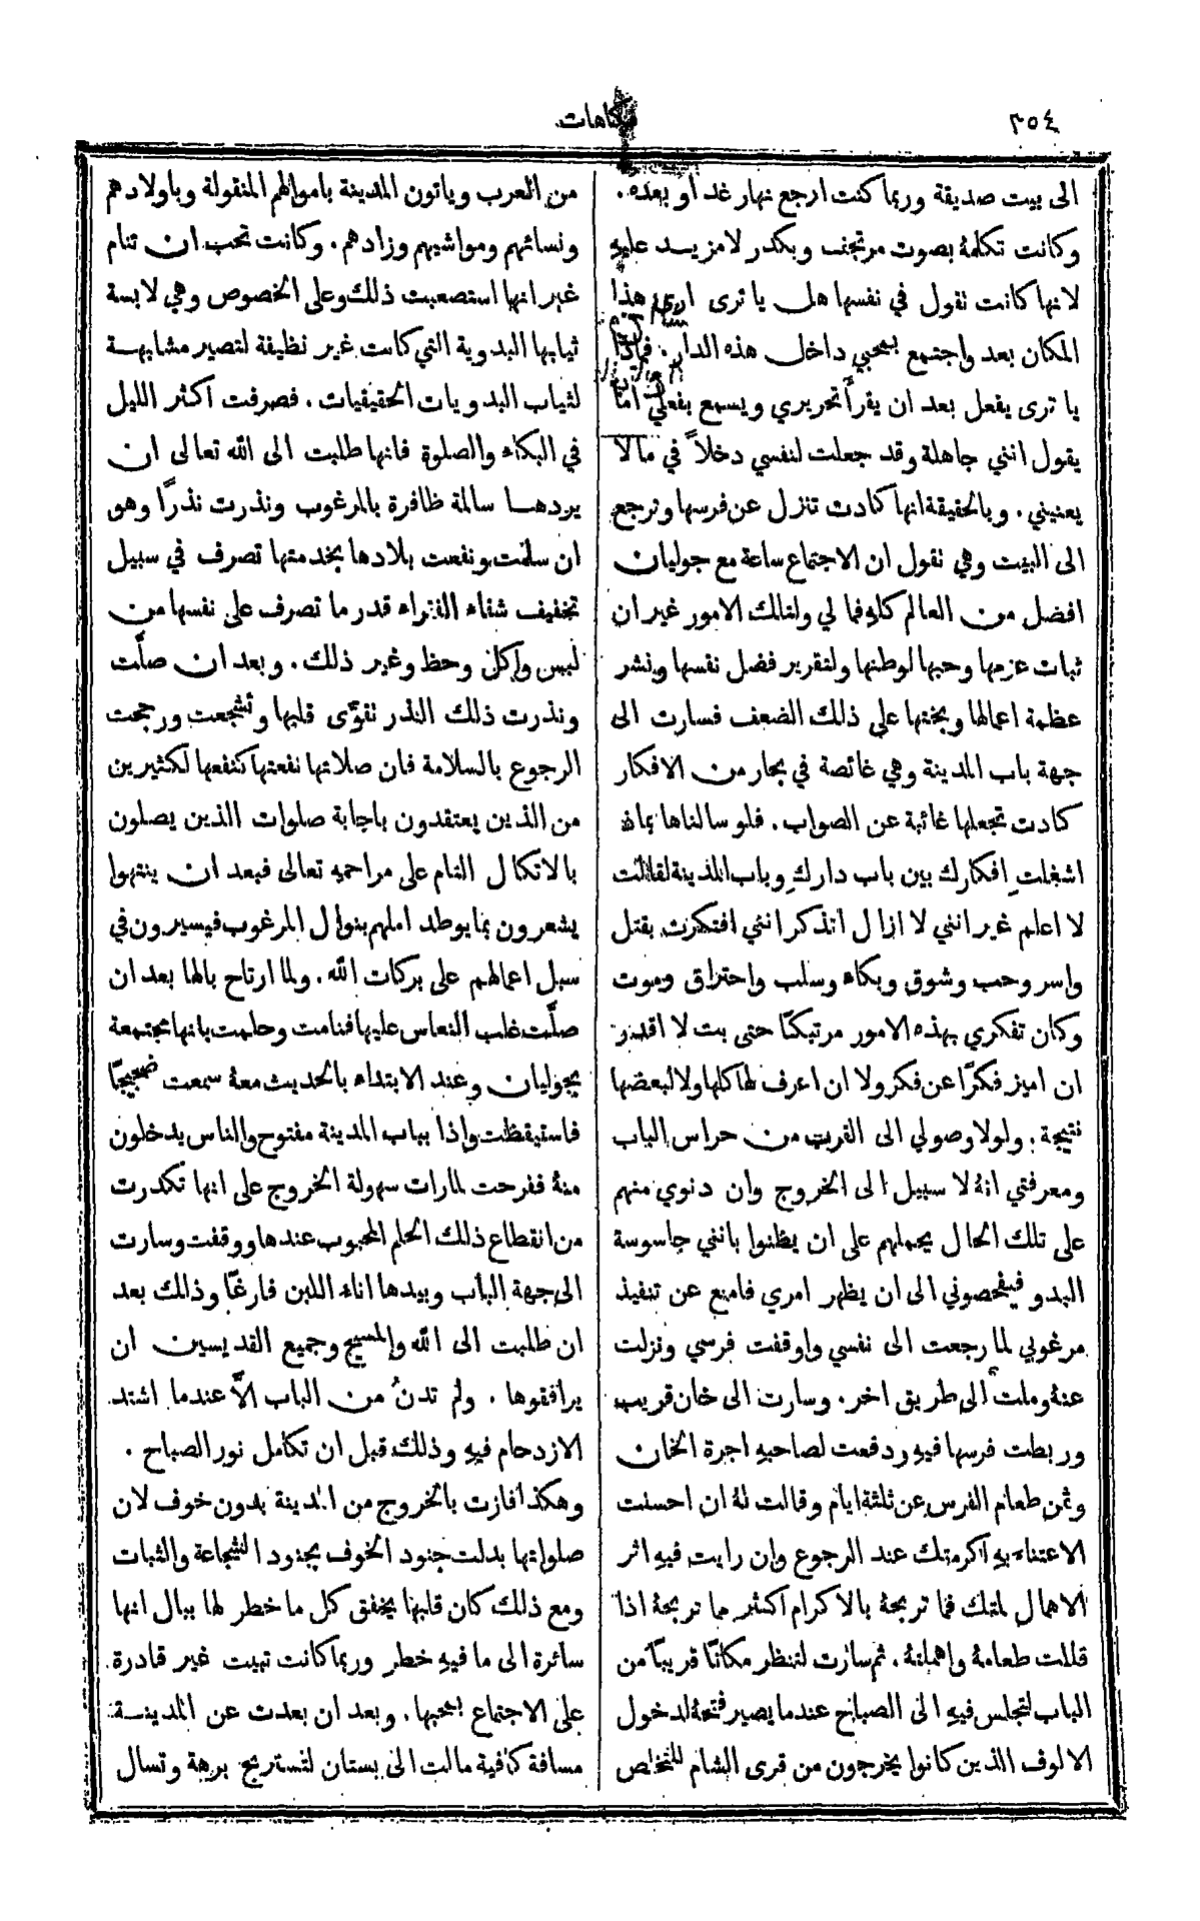 ٣٥٤
فكاهات
الى بيت صديقة وربما كنت ارجع نهار غد او بعده.
وكانت تكلمهُ بصوت مرتجف وبكدر لامزيد عليهِ
لانها كانت نقول في نفسها هل يا ترى ارى هذا
المكان بعد واجتمع بمحبي داخل هذه الدار. فماذا
يا ترى يفعل بعد ان يقرأ تحريري ويسمع بفعلي اما
يقول انني جاهلة وقد جعلت لنفسي دخلاً في مالا
يعنيني. وبالحقيقة انها كادت تنزل عن فرسها وترجع
الى البيت وهي نقول ان الاجتماع ساعة مع جوليان
افضل من العالم كلهِ فما لي ولتلك الامور غير ان
ثبات عزمها وحبها لوطنها ولنقرير فضل نفسها ونشر
عظمة اعمالها وبختها على ذلك الضعف فسارت الى
جهة باب المدينة وهي غائصة في بحار من الافكار
كادت تجعلها غائبة عن الصواب. فلو سالناها بماذا
اشغلتِ افكارك بين باب داركِ وباب المدينة لقالت
لا اعلم غير انني لا ازال اتذكر انني افتكرت بقتل
واسر وحب وشوق وبكاء وسلب واحتراق وموت
وكان تفكري بهذه الامور مرتبكًا حتى بت لا اقدر
ان اميز فكرًا عن فكر ولا ان اعرف لها كلها ولا لبعضها
نتيجة. ولولا وصولي الى القرب من حراس الباب
ومعرفتي انهُ لا سبيل الى الخروج وان دنوي منهم
على تلك الحال يحملهم على ان يظنوا بانني جاسوسة
البدو فيفحصوني الى ان يظهر امري فامنع عن تنفيذ
مرغوبي لما رجعت الى نفسي واوقفت فرسي ونزلت
عنهُ وملت الى طريق اخر. وسارت الى خان قريب
وربطت فرسها فيهِ ودفعت لصاحبهِ اجرة الخان
وثمن طعام الفرس عن ثلثة ايام وقالت لهُ ان احسنت
الاعتناء بهِ اكرمتك عند الرجوع وان رايت فيهِ اثر
الاهمال لمتك فما تربحهُ بالاكرام اكثر مما تربحهُ اذا
قللت طعامهُ واهملتهُ. ثم سارت لتنظر مكانًا قريبًا من
الباب لتجلس فيهِ الى الصباح عندما يصير فتحهُ لدخول
الالوف الذين كانوا يخرجون من قرى الشام للتخلص
من العرب وياتون المدينة باموالهم المنقولة وباولادهم
ونسائهم ومواشيهم وزادهم. وكانت تحب ان تنام
غير انها استصعبت ذلك وعلى الخصوص وهي لابسة
ثيابها البدوية التي كانت غير نظيفة لتصير مشابهة
لثياب البدويات الحقيقيات. فصرفت اكثر الليل
في البكاء والصلوة فانها طلبت الى الله تعالى ان
يردها سالمة ظافرة بالمرغوب ونذرت نذرًا وهو
ان سلمت ونفعت بلادها بخدمتها تصرف في سبيل
تخفيف شقاء الفقراء قدر ما تصرف على نفسها من
لبس واكل وحظ وغير ذلك. وبعد ان صلَّت
ونذرت ذلك النذر نقوَّى قلبها وتشجعت ورجحت
الرجوع بالسلامة فان صلاتها نفعتها كنفعها لكثيرين
من الذين يعتقدون باجابة صلوات الذين يصلون
بالاتكال التام على مراحمهِ تعالى فبعد ان ينتهوا
يشعرون بما يوطد املهم بنوال المرغوب فيسيرون في
سبل اعمالهم على بركات الله. ولما ارتاح بالها بعد ان
صلَّت غلب النعاس عليها فنامت وحلمت بانها مجتمعة
بجوليان وعند الابتداء بالحديث معهُ سمعت ضجيجًا
فاستيقظت واذا بباب المدينة مفتوح والناس يدخلون
منهُ ففرحت لما رات سهولة الخروج على انها تكدرت
من انقطاع ذلك الحلم المحبوب عندها ووقفت وسارت
الى جهة الباب وبيدها اناء اللبن فارغًا وذلك بعد
ان طلبت الى الله والمسيح وجميع القديسين ان
يرافقوها. ولم تدنُ من الباب الَّا عندما اشتد
الازدحام فيهِ وذلك قبل ان تكامل نور الصباح.
وهكذا فازت بالخروج من المدينة بدون خوف لان
صلواتها بدلت جنود الخوف بجنود الشجاعة والثبات
ومع ذلك كان قلبها يخفق كل ما خطر لها ببال انها
سائرة الى ما فيهِ خطر وربما كانت تبيت غير قادرة
على الاجتماع بمحبها. وبعد ان بعدت عن المدينة
مسافة كافية مالت الى بستان لتستريح برهة وتسال